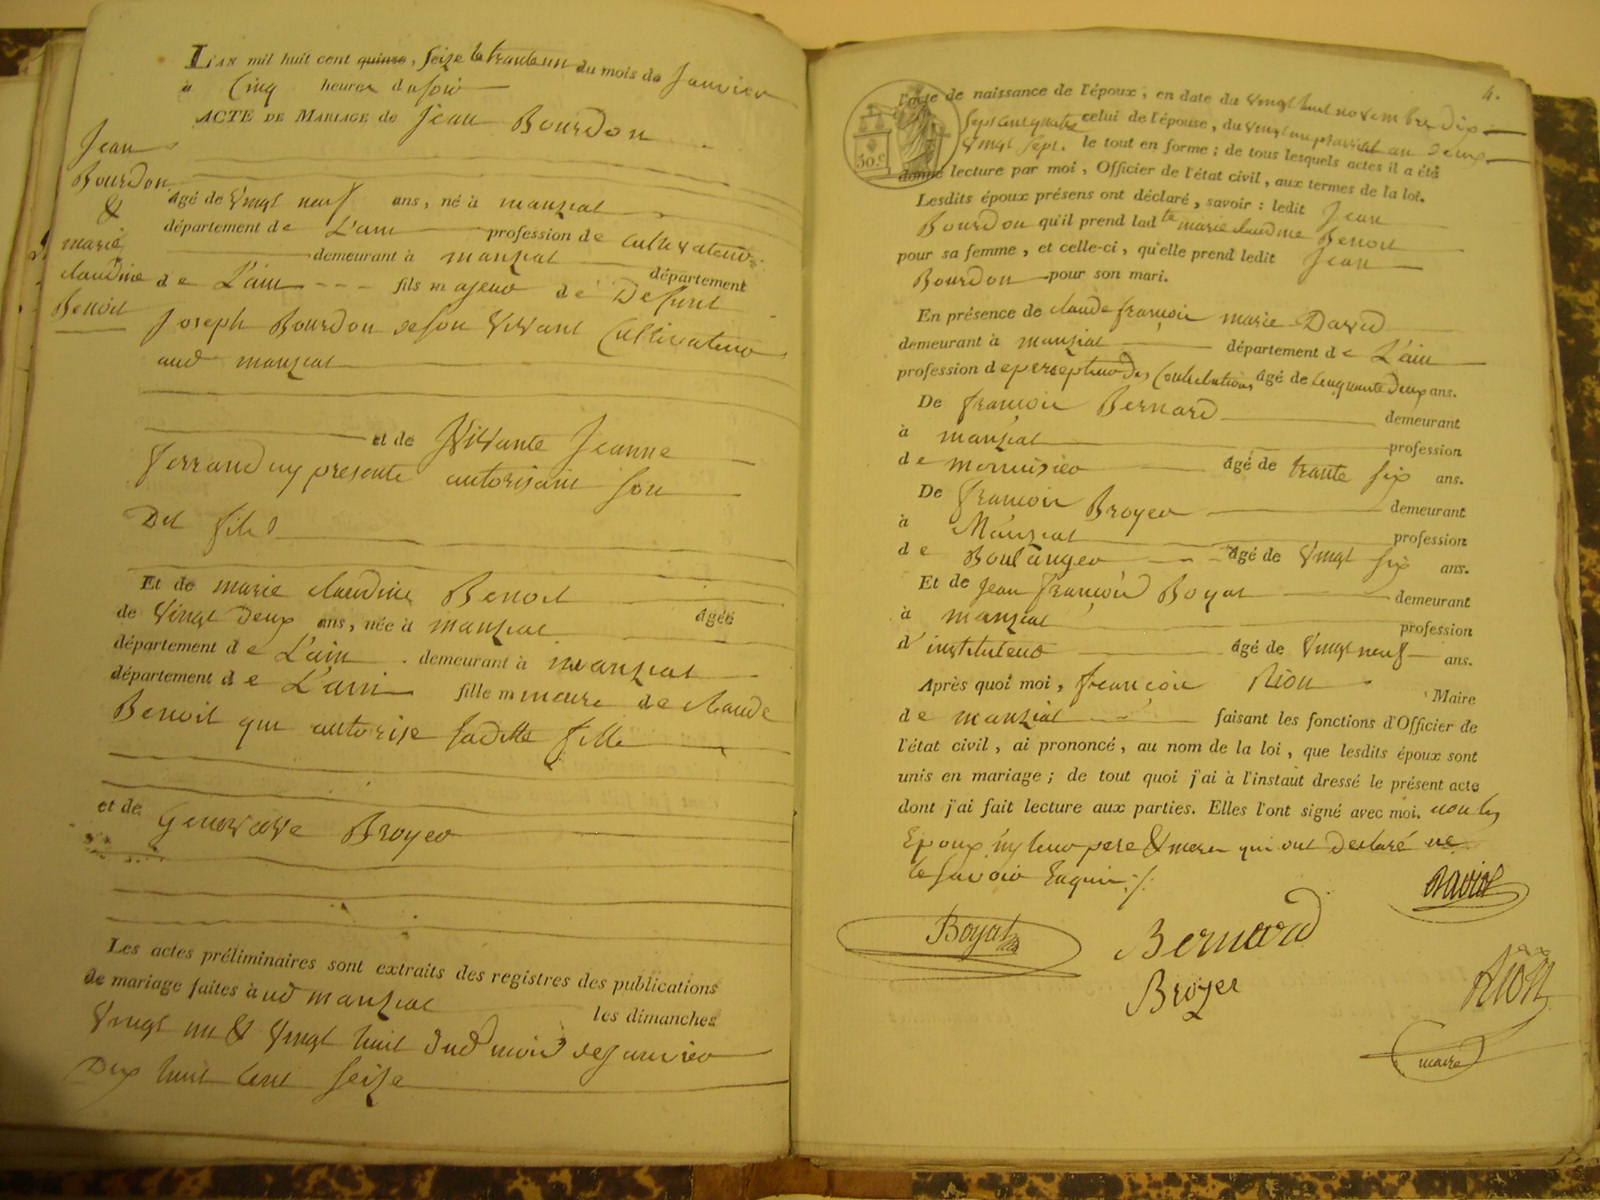 L'AN mil huit cent quinze, seize le trante un du mois de Janvier
à Cinq heures du soir
ACTE DE MARIAGE de Jean Bourdon
Jean
Bourdon
&
marie
claudine
Benoit
âgé de vingt neuf ans, né à manziat
département de L'ain profession de cultivateur
demeurant à manziat département
de L'ain fils majeur de Defunt
Joseph Bourdon de son vivant Cultivateur
aud manziat
et de Vivante Jeanne
Ferrand ny presente autorisant son
Dit fils
Et de marie claudine Benoit âgée
de vingt deux ans, née à manziat
département de L'ain demeurant à manziat
département de L'ain fille mineure de claude
Benoit qui autorise saditte fille
et de Genevieve Broyer
Les actes préliminaires sont extraits des registres des publications
de mariage faites à ud manziat les dimanches
vingt un & vingt huit dud mois de janvier
Dix huit cent seize
4.
l'acte de naissance de l'époux, en date du vingt huit novembre dix
sept cent quatre celui de l'épouse, du vingt un pluviose an deux
vingt sept. le tout en forme; de tous lesquels actes il a été
donné lecture par moi, Officier de l'état civil, aux termes de la loi.
30 c
Lesdits époux présens ont déclaré, savoir: ledit Jean
Bourdon qu'il prend lad te marie claudine Benoit
pour sa femme, et celle-ci, qu'elle prend ledit Jean
Bourdon pour son mari.
En présence de claude françois marie David
demeurant à manziat département de L'ain
profession de percepteur des Contributions âgé de cinquante deux ans.
De françois Bernard demeurant
à manziat profession
de menuisier âgé de trante six ans.
De françois Broyer demeurant
à Manziat profession
de Boulanger âgé de vingt six ans.
Et de Jean françois Boyat demeurant
à manziat profession
d'instituteur âgé de vingt neuf ans.
Après quoi moi, françois Rion Maire
de manziat faisant les fonctions d'Officier de
l'état civil, ai prononcé, au nom de la loi, que lesdits époux sont
unis en mariage; de tout quoi j'ai à l'instant dressé le présent acte
dont j'ai fait lecture aux parties. Elles l'ont signé avec moi. non les
Epoux ny leur pere & mere qui ont declaré ne
le savoir Enquis
David
Boyat
Bernard
Broyer
Rion
maire